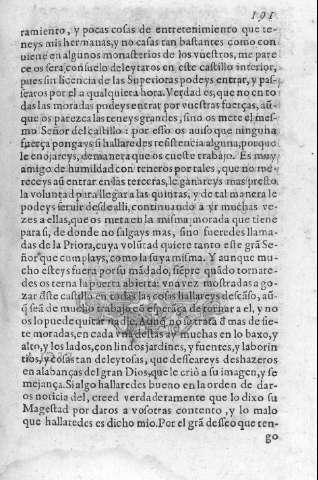 191
ramiento, y pocas cosas de entretenimiento que te-
neys mis hermanas, y no casas tan bastantes como con
uiene en algunos monasterios de los vuestros, me pare
ce os sera consuelo deleytaros en este castillo interior,
pues sin licencia de las Superioras podeys entrar, y pas-
searos por el a qualquiera hora. Verdad es, que no en to
das las moradas podeys entrar por vuestras fuerças, aũ-
que os parezca las teneys grandes, sino os mete el mes-
mo Señor del castillo: por esso os auiso que ninguna
fuerça pongays si hallaredes resistencia alguna, porque
le enojareys, de manera que os cueste trabajo. Es muy
amigo de humildad con teneros por tales, que no me-
receys aũ entrar en las terceras, le ganareys mas presto
la voluntad para llegar a las quintas, y de tal manera le
podeys seruir desde alli, continuando a yr muchas ve-
zes a ellas, que os meta en la misma morada que tiene
para si, de donde no salgays mas, sino fueredes llama-
das de la Priora, cuya volũtad quiere tanto este grã Se-
ñor que cumplays, como la suya misma. Y aunque mu-
cho esteys fuera por su mãdado, siẽpre quãdo tornare-
des os terna la puerta abierta: vna vez mostradas a go-
zar dẽste castillo en todas las cosas hallareys descãso, aũ-
q̃ seã de mucho trabajo, cõ esperãça de tornar a el, y no
os lo puede quitar nadie. Aunq̃ no se trata d̃ mas de sie-
te moradas, en cada vna dellas ay muchas en lo baxo, y
alto, y los lados, con lindos jardines, y fuentes, y laborin
tios, y cosas tan deleytosas, que desseareys deshazeros
en alabanças del gran Dios, que le criò a su imagen, y se
mejança. Si algo hallaredes bueno en la orden de dar-
os noticia del, creed verdaderamente que lo dixo su
Magestad por daros a vosotras contento, y lo malo
que hallaredes es dicho mio. Por el grã desseo que ten-
go